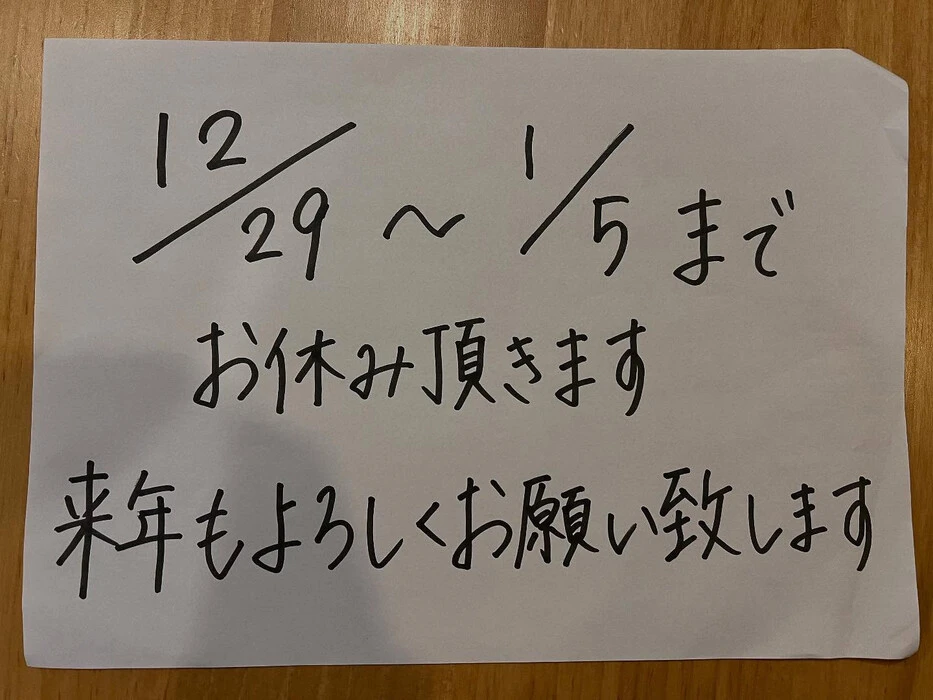 12/29～1/5まで
お休み頂きます
来年もよろしくお願い致します